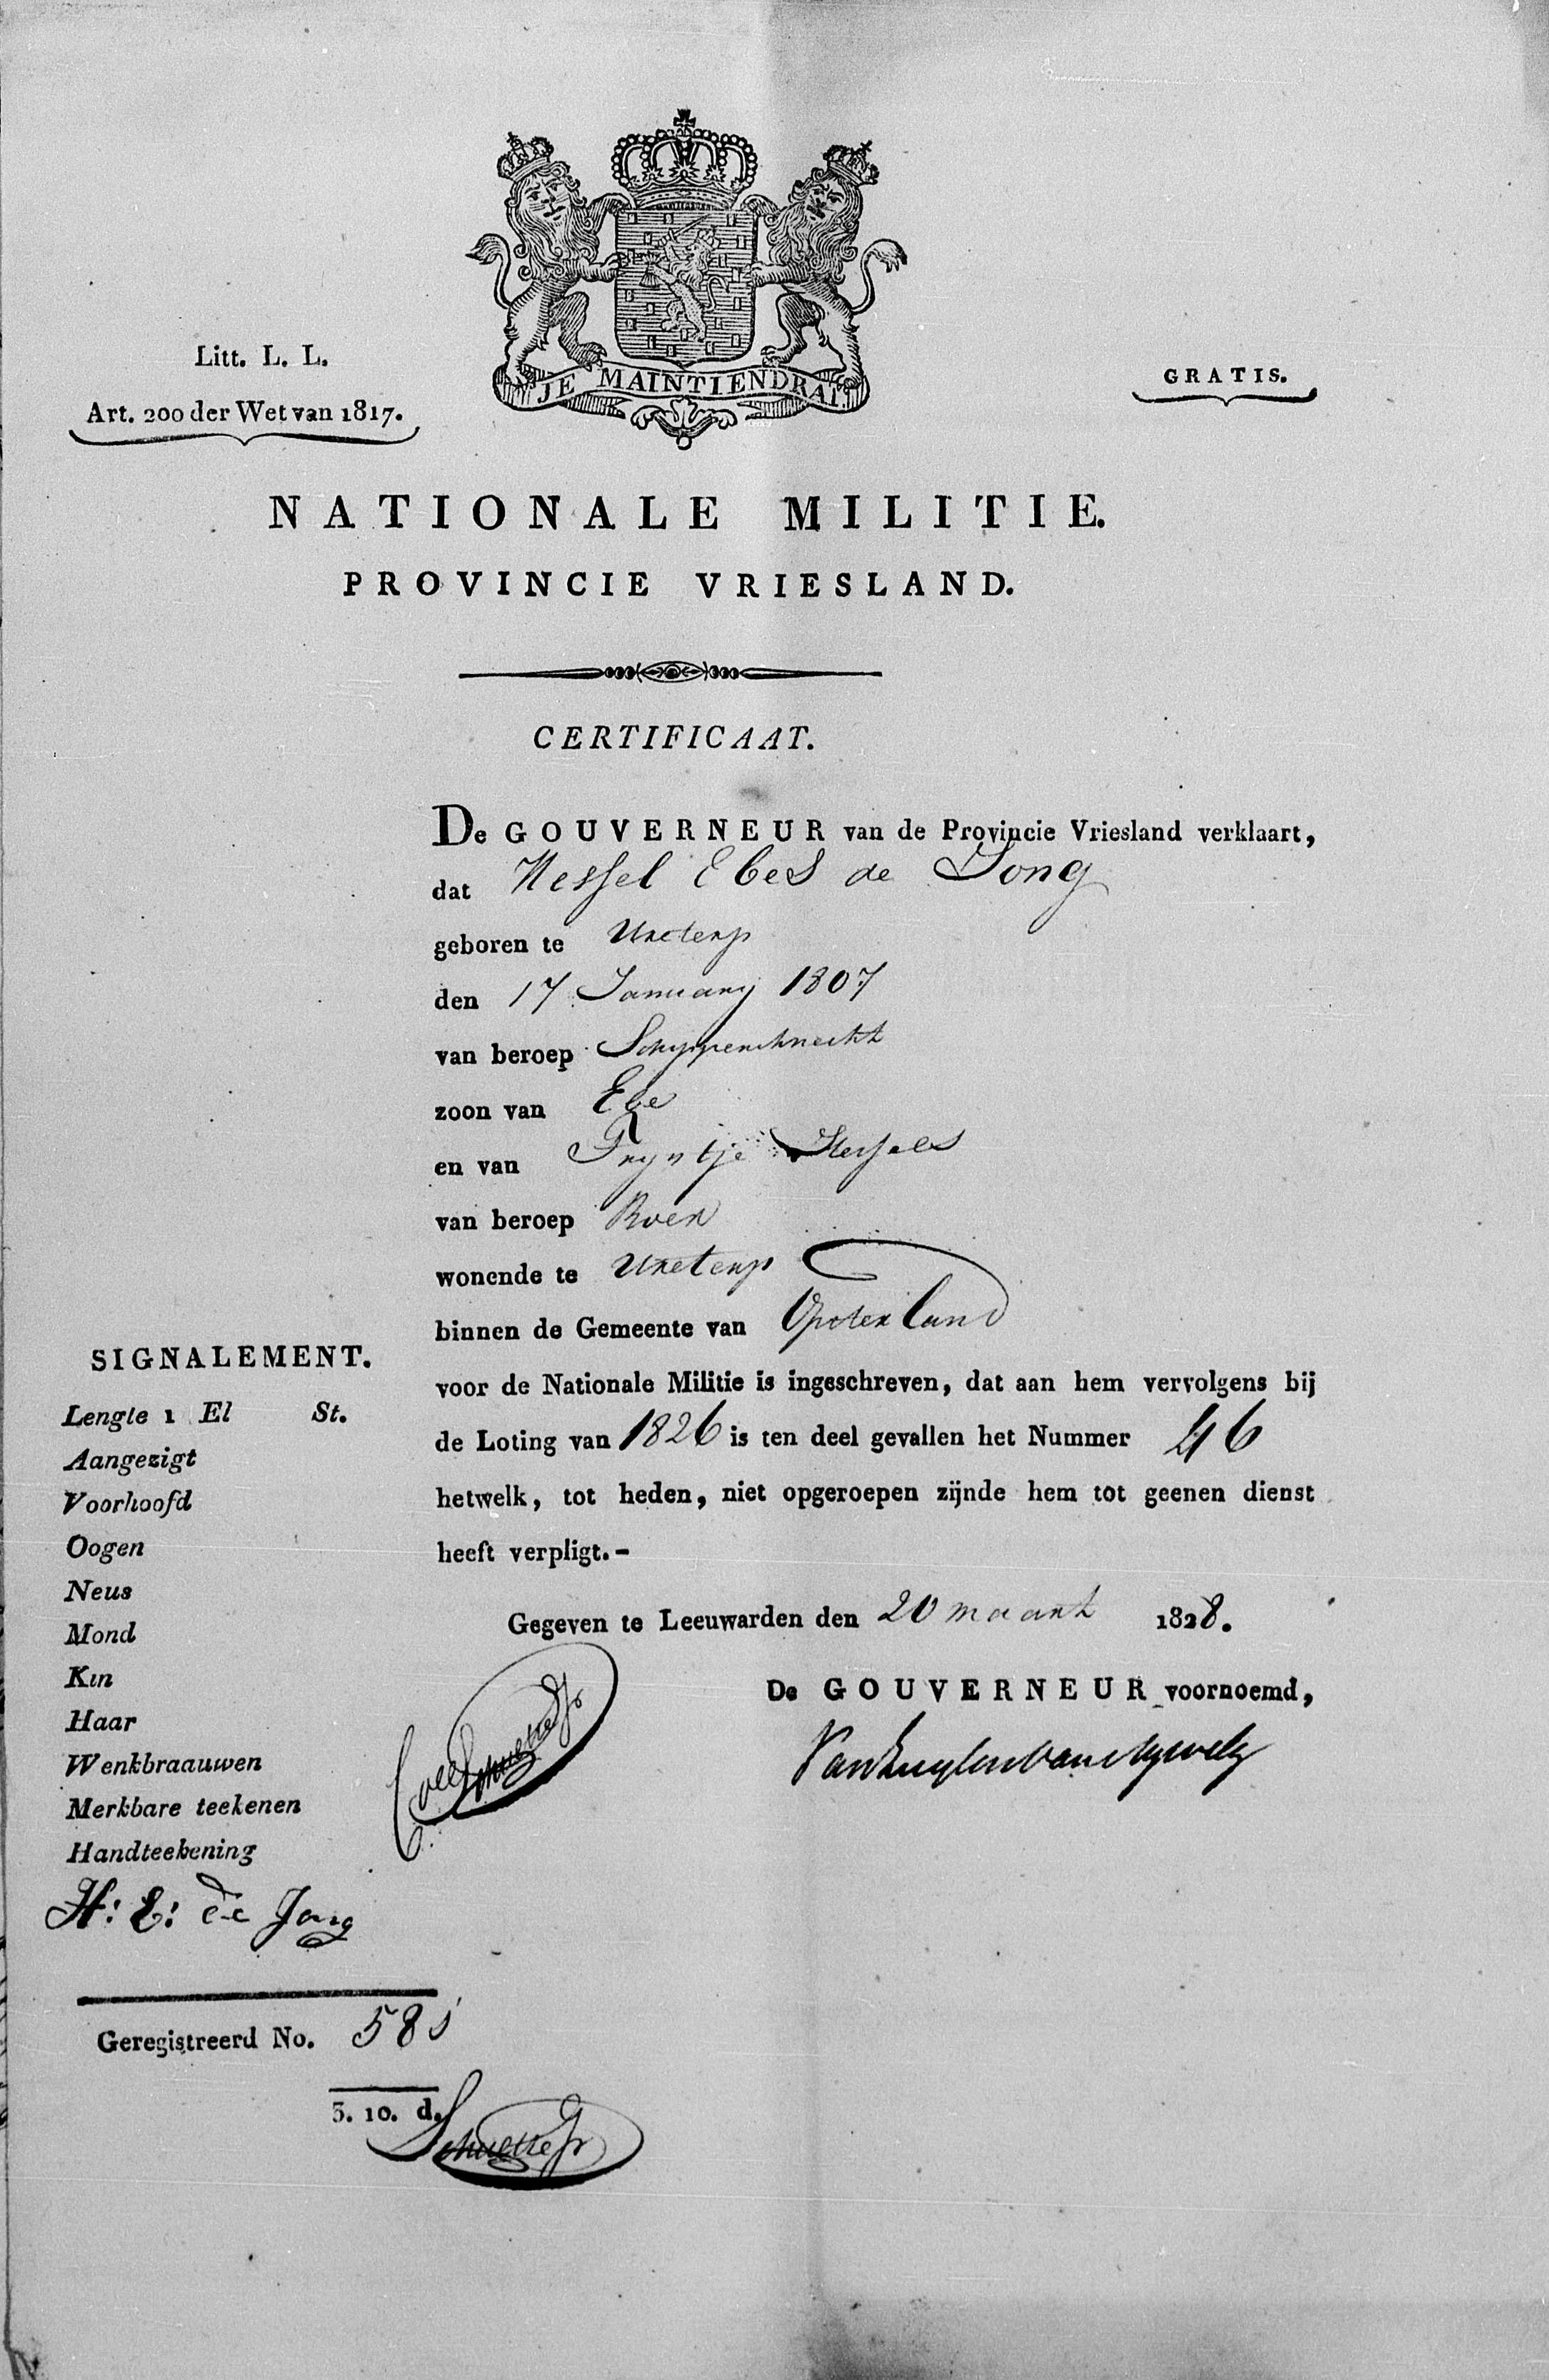 JE MAINTIENDRAI.
Litt. L. L.
Art. 200 der Wet van 1817.
GRATIS.
NATIONALE MILITIE.
PROVINCIE VRIESLAND.
CERTIFICAAT.
De GOUVERNEUR van de Provincie Vriesland verklaart,
dat Hessel Ebes de Jong
geboren te Ureterp
den 17 January 1807
van beroep Schippersknecht
zoon van Ebe
en van Fryntje Hessels
van beroep Boer
wonende te Ureterp
binnen de Gemeente van Opsterland
voor de Nationale Militie is ingeschreven, dat aan hem vervolgens bij
de Loting van 1826 is ten deel gevallen het Nummer 46
hetwelk, tot heden, niet opgeroepen zijnde hem tot geenen dienst
heeft verpligt.-
Gegeven te Leeuwarden den 20 maart 1828.
De GOUVERNEUR voornoemd,
SIGNALEMENT.
Lengte 1 El St.
Aangezigt
Voorhoofd
Oogen
Neus
Mond
Kin
Haar
Wenkbraauwen
Merkbare teekenen
Handteekening
H: E: de Jong
Geregistreerd No. 585
3. 10. d.